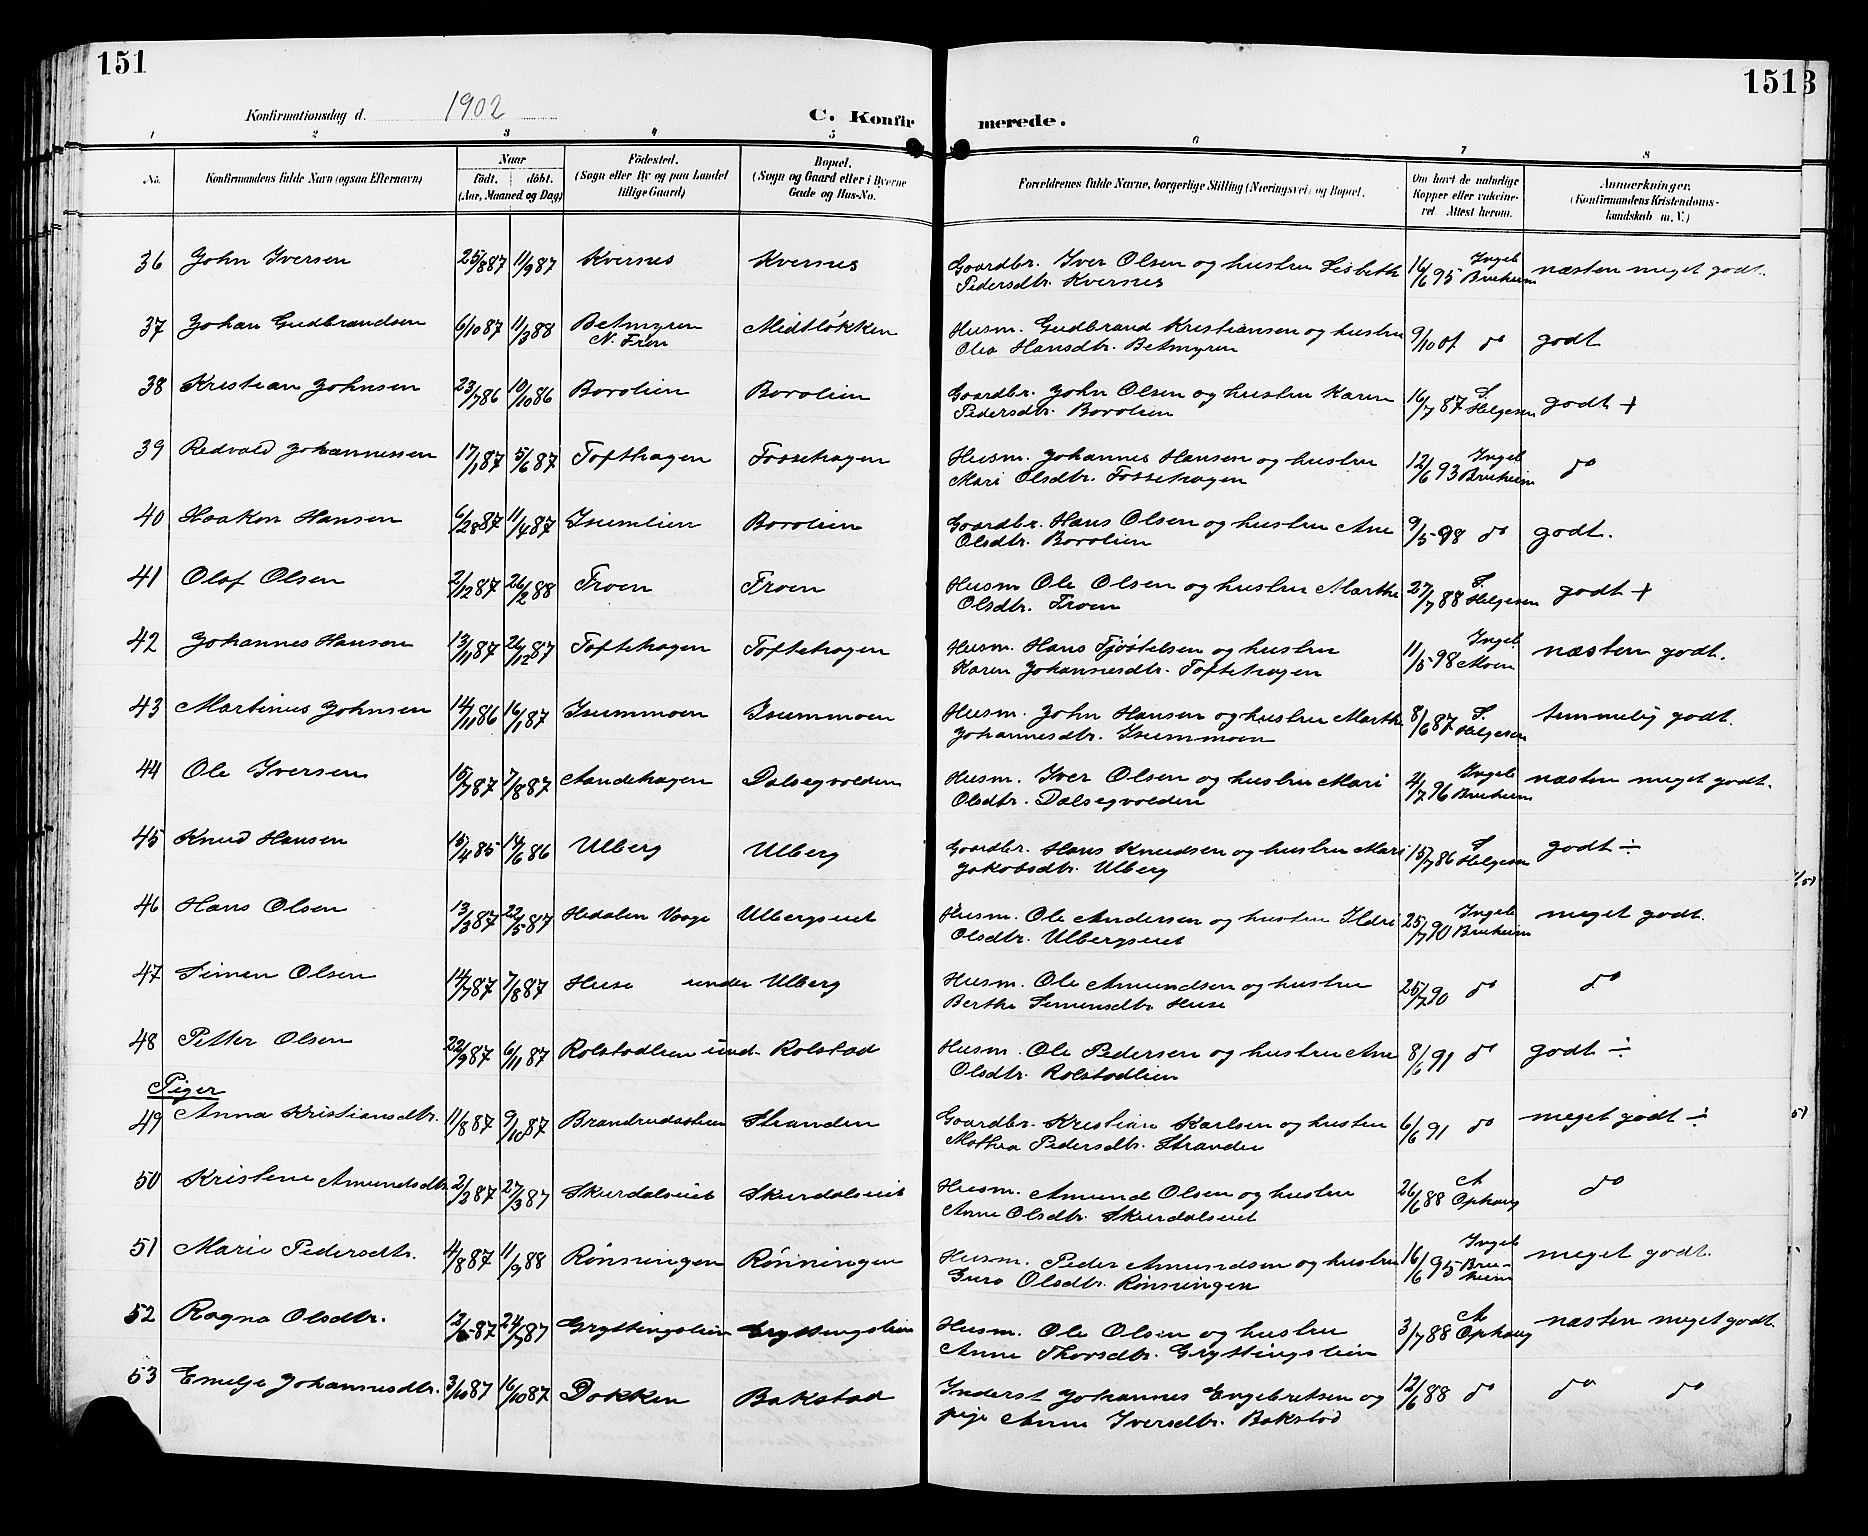 151
1513
Konfirmationsdag d. 1902
C. Konfirmerede.
1 2 3 4 5 6 7 8
No.
Konfirmandens fulde Navn (ogsaa Efternavn)
Naar
födt. döbt.
(Aar, Maaned og Dag)
Födested.
(Sogn eller By og paa Landet
tillige Gaard)
Bopæl.
(Sogn og Gaard eller i Byerne
Gade og Hus-No.
Forældrenes fulde Navne, borgerlige Stilling (Næringsvei) og Bopæl.
Om havt de naturlige
Kopper eller vakcine-
ret. Attest herom.
Anmerkninger.
(Konfirmandens Kristendoms-
kundskab m. V.)
36 John Iversen 25/8 87 11/9 87 Kvernes Kvernes Gaardbr. Iver Olsen og hustru Lisbeth 16/6 95 Ingeb. næsten meget godt.
Pedersdtr. Kvernes Bruheim
37 Johan Gudbrandsen 6/10 87 11/3 88 Betmyren Midtløkken Husm. Gudbrand Kristiansen og hustru 9/10 01 do godt
N. Fron Olea Hansdtr. Betmyren
38 Kristian Johnsen 23/7 86 10/10 86 Borolien Borolien Gaardbr. John Olsen og hustru Karen 16/7 87 S. godt +
Pedersdtr. Borolien Helgesen
39 Redvald Johannessen 17/1 87 5/6 87 Tofthagen Fossehagen Husm. Johannes Hansen og hustru 12/6 93 Ingeb. do
Mari Olsdtr. Fossehagen Bruheim
40 Haakon Hansen 6/2 87 11/4 87 Isumlien Borolien Gaardbr. Hans Olsen og hustru Ane 9/5 98 do godt.
Olsdtr. Borolien
41 Olaf Olsen 2/12 87 26/2 88 Froen Froen Husm Ole Olsen og hustru Marthe 27/7 88 S. godt +
Olsdtr. Froen Helgesen
42 Johannes Hansen 13/11 87 26/12 87 Toftehagen Toftehagen Husm. Hans Tjøstelsen og hustru 11/5 98 Ingeb. næsten godt.
Karen Johannesdtr. Toftehagen Moen
43 Martinus Johnsen 14/11 86 16/1 87 Isummoen Isummoen Husm. John Hansen og hustru Marth. 8/6 87 S. temmelig godt.
Johannesdtr. Isummoen Helgesen
44 Ole Iversen 15/7 87 7/8 87 Aandehagen Dalsegvolden Husm. Iver Olsen og hustru Mari 2/7 96 Ingeb næsten meget godt.
Olsdtr. Dalsegvolden Bruheim
45 Knud Hansen 15/4 85 14/6 86 Ulberg Ulberg Gaardbr. Hans Knudsen og hustru Mari 15/7 86 S godt ÷
Jakobsdtr. Ulberg Helgesen
46 Hans Olsen 13/3 87 22/5 87 Hedalen Vaage Ulbergseiet Husm. Ole Andersen og hustru Ildri 25/7 90 Ingeb meget godt.
Olsdtr. Ulbergseiet Bruheim
47 Simen Olsen 14/7 87 7/8 87 Huse under Ulberg Husm. Ole Amundsen og hustru 25/7 90 do do
Berthe Simensdtr. Huse
48 Petter Olsen 22/9 87 6/11 87 Rolstadlien und. Rolstad Husm. Ole Pedersen og hustru Ane 8/6 91 do godt ÷
Olsdtr. Rolstadlien
Piger
49 Anna Kristiansdtr. 11/8 87 9/10 87 Brandrudsstuen Stranden Gaardbr. Kristian Karlsen og hustru 6/6 91 do meget godt ÷
Mathea Pedersdtr. Stranden
50 Kristene Amundsdtr. 2/2 87 27/3 87 Skurdalseiet Skurdalseiet Husm. Amund Olsen og hustru 26/6 88 A do
Anne Olsdtr. Skurdalseiet Ophaug
51 Marie Pedersdtr. 4/8 87 11/9 88 Rønningen Rønningen Husm. Peder Amundsen og hustru 16/6 95 Ingeb meget godt.
Guro Olsdtr. Rønningen Bruheim
52 Ragna Olsdtr. 12/5 87 24/7 87 Gryttingslien Gryttingslien Husm. Ole Olsen og hustru 3/7 88 A næsten meget godt.
Anne Thorsdtr. Gryttingslien Ophaug
53 Emelje Johannesdtr. 3/10 87 16/10 87 Dokken Bakstad Inderst Johannes Engebretsen og 12/6 88 do do do
pige Anne Iversdtr. Bakstad